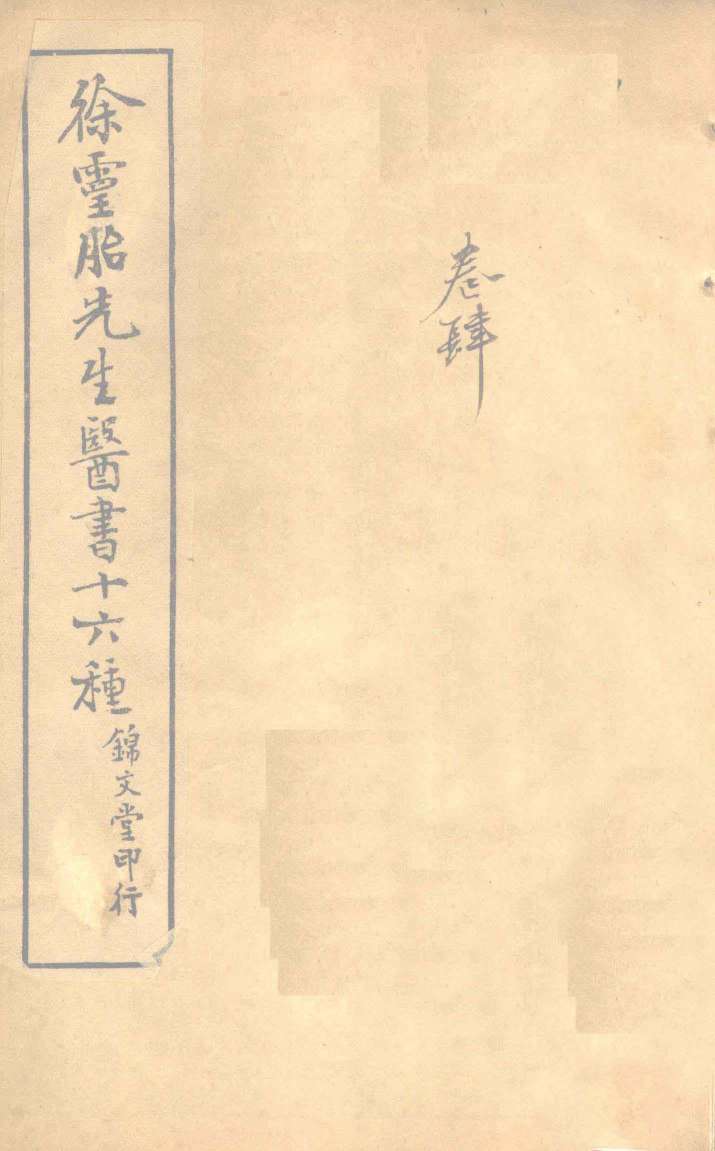 卷肆
徐霊胎先生醫書十六種
錦文堂印行